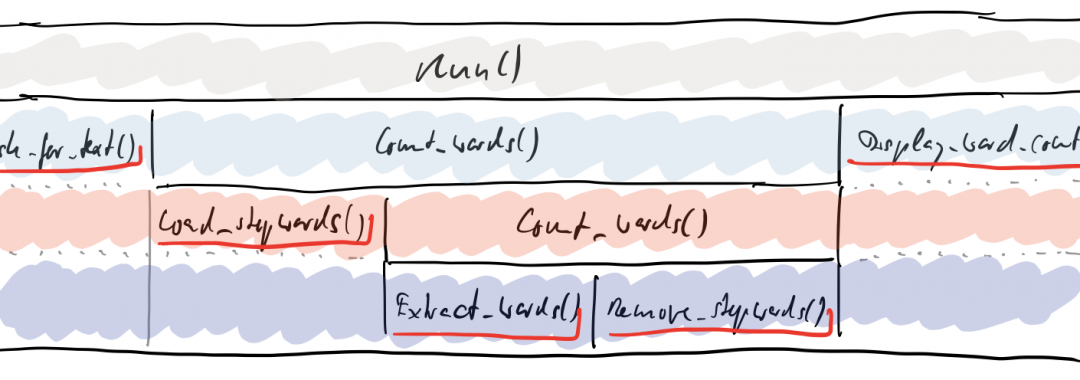 Run()
sk_for_text() Count_words() Display_word_count
Load_stopwords() Count_words()
Extract_words() Remove_stopwords()